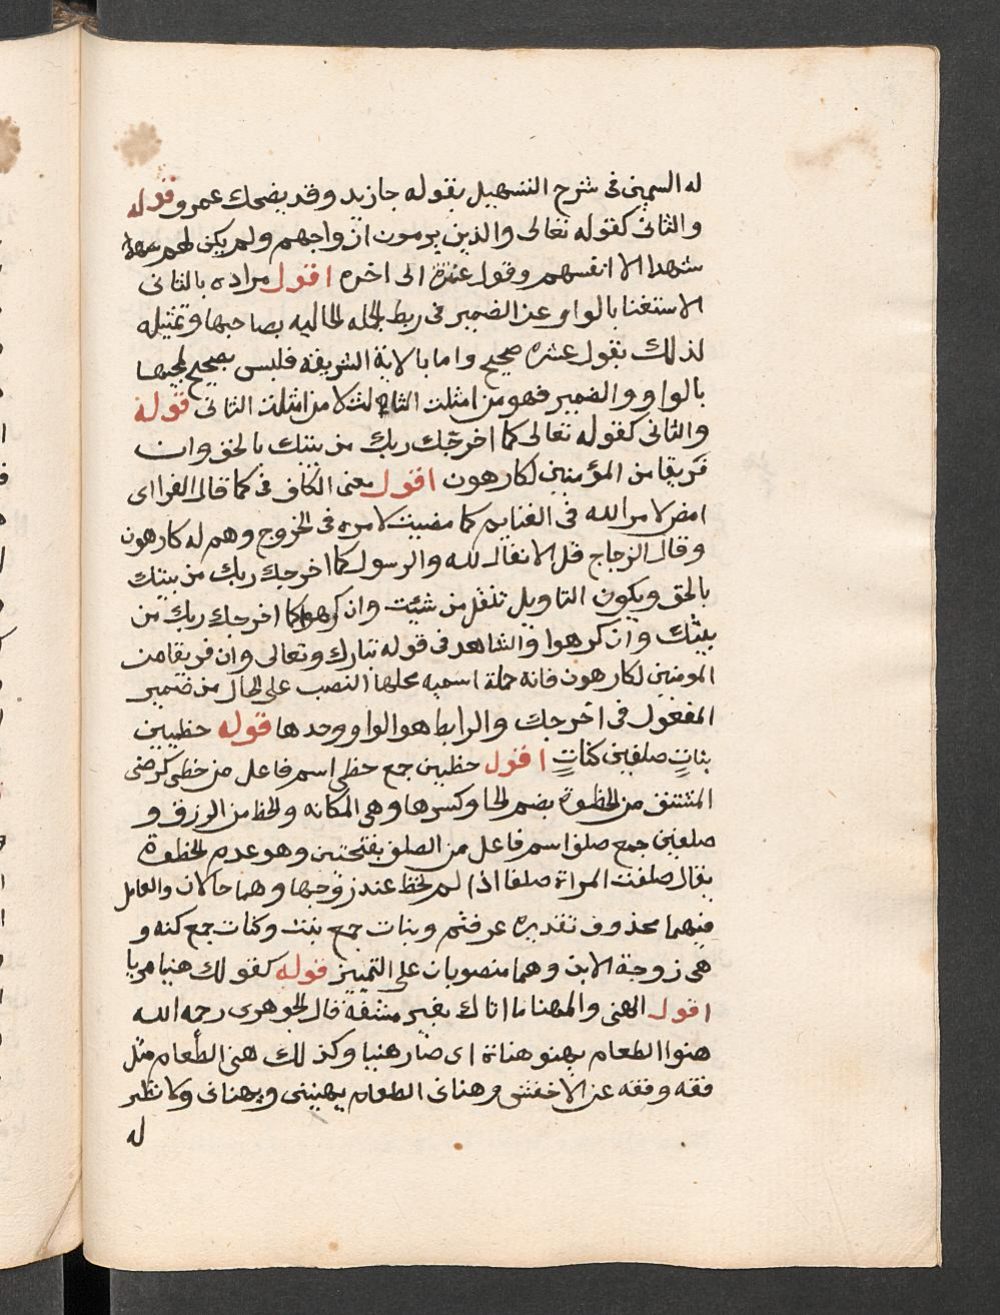 له السمين فى شرح التسهيل بقوله جا زيد وقد يضحك عمرو قوله
والثانى كقوله تعالى والذين يرمون ازواجهم ولم يكن لهم
شهدا الا انفسهم وقول عنترة الى اخره اقول مراده بالثانى
الاستغنا بالواو عن الضمير فى ربط الجمله الحاليه بصاحبها وتمثيله
لذلك بقول عنتره صحيح واما بالاية الشريفة فليس بصحيح لمجيها
بالواو والضمير فهو من امثلت الثالث لا من امثلت الثانى قوله
والثانى كقوله تعالى كما اخرجك ربك من بيتك بالحق وان
فريقا من المؤمنين لكارهون اقول معنى الكاف فى كما قال الفرا اى
امض لامر الله فى الغنايم كما مضيت لامره فى الخروج وهم له كارهون
وقال الزجاج قل الانفال لله والرسول كما اخرجك ربك من بيتك
بالحق ويكون التاويل تنفل من شيئت وان كرهوا كما اخرجك ربك من
بيتك وان كرهوا والشاهد فى قوله تبارك وتعالى وان فريقا من
المومنين لكارهون فانه جملة اسميه محلها النصب على الحال من ضمير
المفعول فى اخرجك والرابط هو الواو وحدها قوله حظيين
بناتٍ صلفين كناتٍ اقول حظيين جمع حظي اسم فاعل من حظى كرضى
المشتق من الحظوة بضم الحا وكسرها وهى المكانه والحظ من الرزق و
صلفين جمع صلف اسم فاعل من الصلف بفتحتين وهو عدم الحظوة
يقال صلفت المراة صلفا اذا لم تحظ عند زوجها وهما حالان والعامل
فيهما محذوف تقديره عرفتم وبنات جمع بنت وكنات جمع كنه و
هى زوجة الابن وهما منصوبان على التمييز قوله كقولك هنيا مريا
اقول الهنى والمهنا ما اتاك بغير مشقة قال الجوهرى رحمه الله
هنوا الطعام يهنو هناة اى صار هنيا وكذلك هنى الطعام مثل
فقه وفقه عن الاخفش وهنانى الطعام يهنينى ويهنانى ولا نظير
له